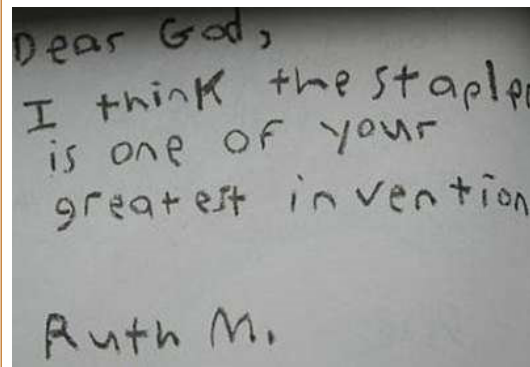 Dear God,
I think the staple
is one of your
greatest invention
Ruth M.